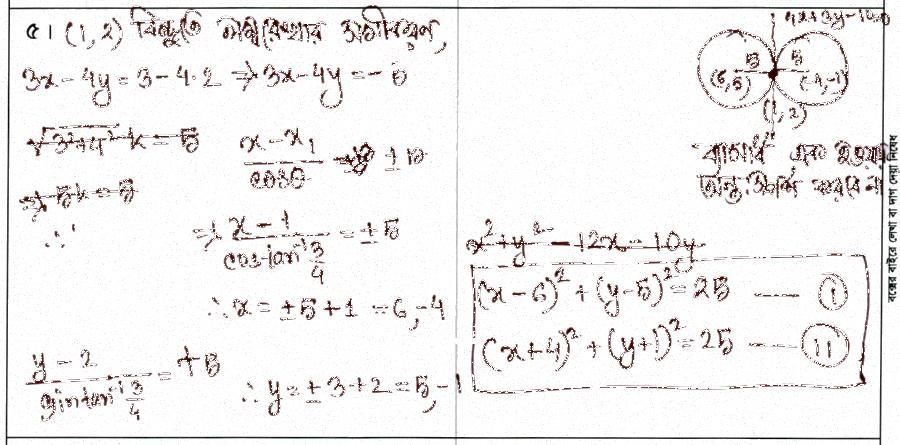 ৫। (1, 2) বিন্দুতে লম্বরেখার সমীকরণ,
3x - 4y = 3 - 4·2 ⇒ 3x - 4y = -5
√3²+4² k = 5
⇒ 5k = 5
∴
x - x₁ / cosθ = ± r
⇒ x - 1 / cos tan⁻¹ 3/4 = ± 5
∴ x = ± 5 + 1 = 6, -4
y - 2 / sin tan⁻¹ 3/4 = ± 5
∴ y = ± 3 + 2 = 5, -1
4x + 3y - 10 = 0
5 5
(6, 5) (-4, -1)
(1, 2)
ব্যাসার্ধ এক হওয়ায়
করবে না
x² + y² - 12x - 10y
(x - 6)² + (y - 5)² = 25 —— (i)
(x + 4)² + (y + 1)² = 25 —— (ii)
বক্সের বাইরে লেখা বা দাগ দেয়া নিষেধ